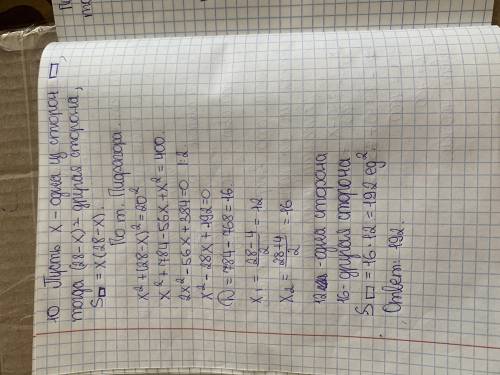 10 Пусть x - одна из сторон ▭,
тогда (28-x) - другая сторона,
S▭ = x(28-x).
По т. Пифагора.
x²+(28-x)²=20²
x²+784-56x+x²=400.
2x²-56x+384=0 |:2
x²-28x+192=0
D=784-768=16.
x₁ = (28-4)/2 = 12
x₂ = (28+4)/2 = 16
12 - одна сторона
16 - другая сторона
S▭ = 16·12=192 ед².
Ответ: 192.